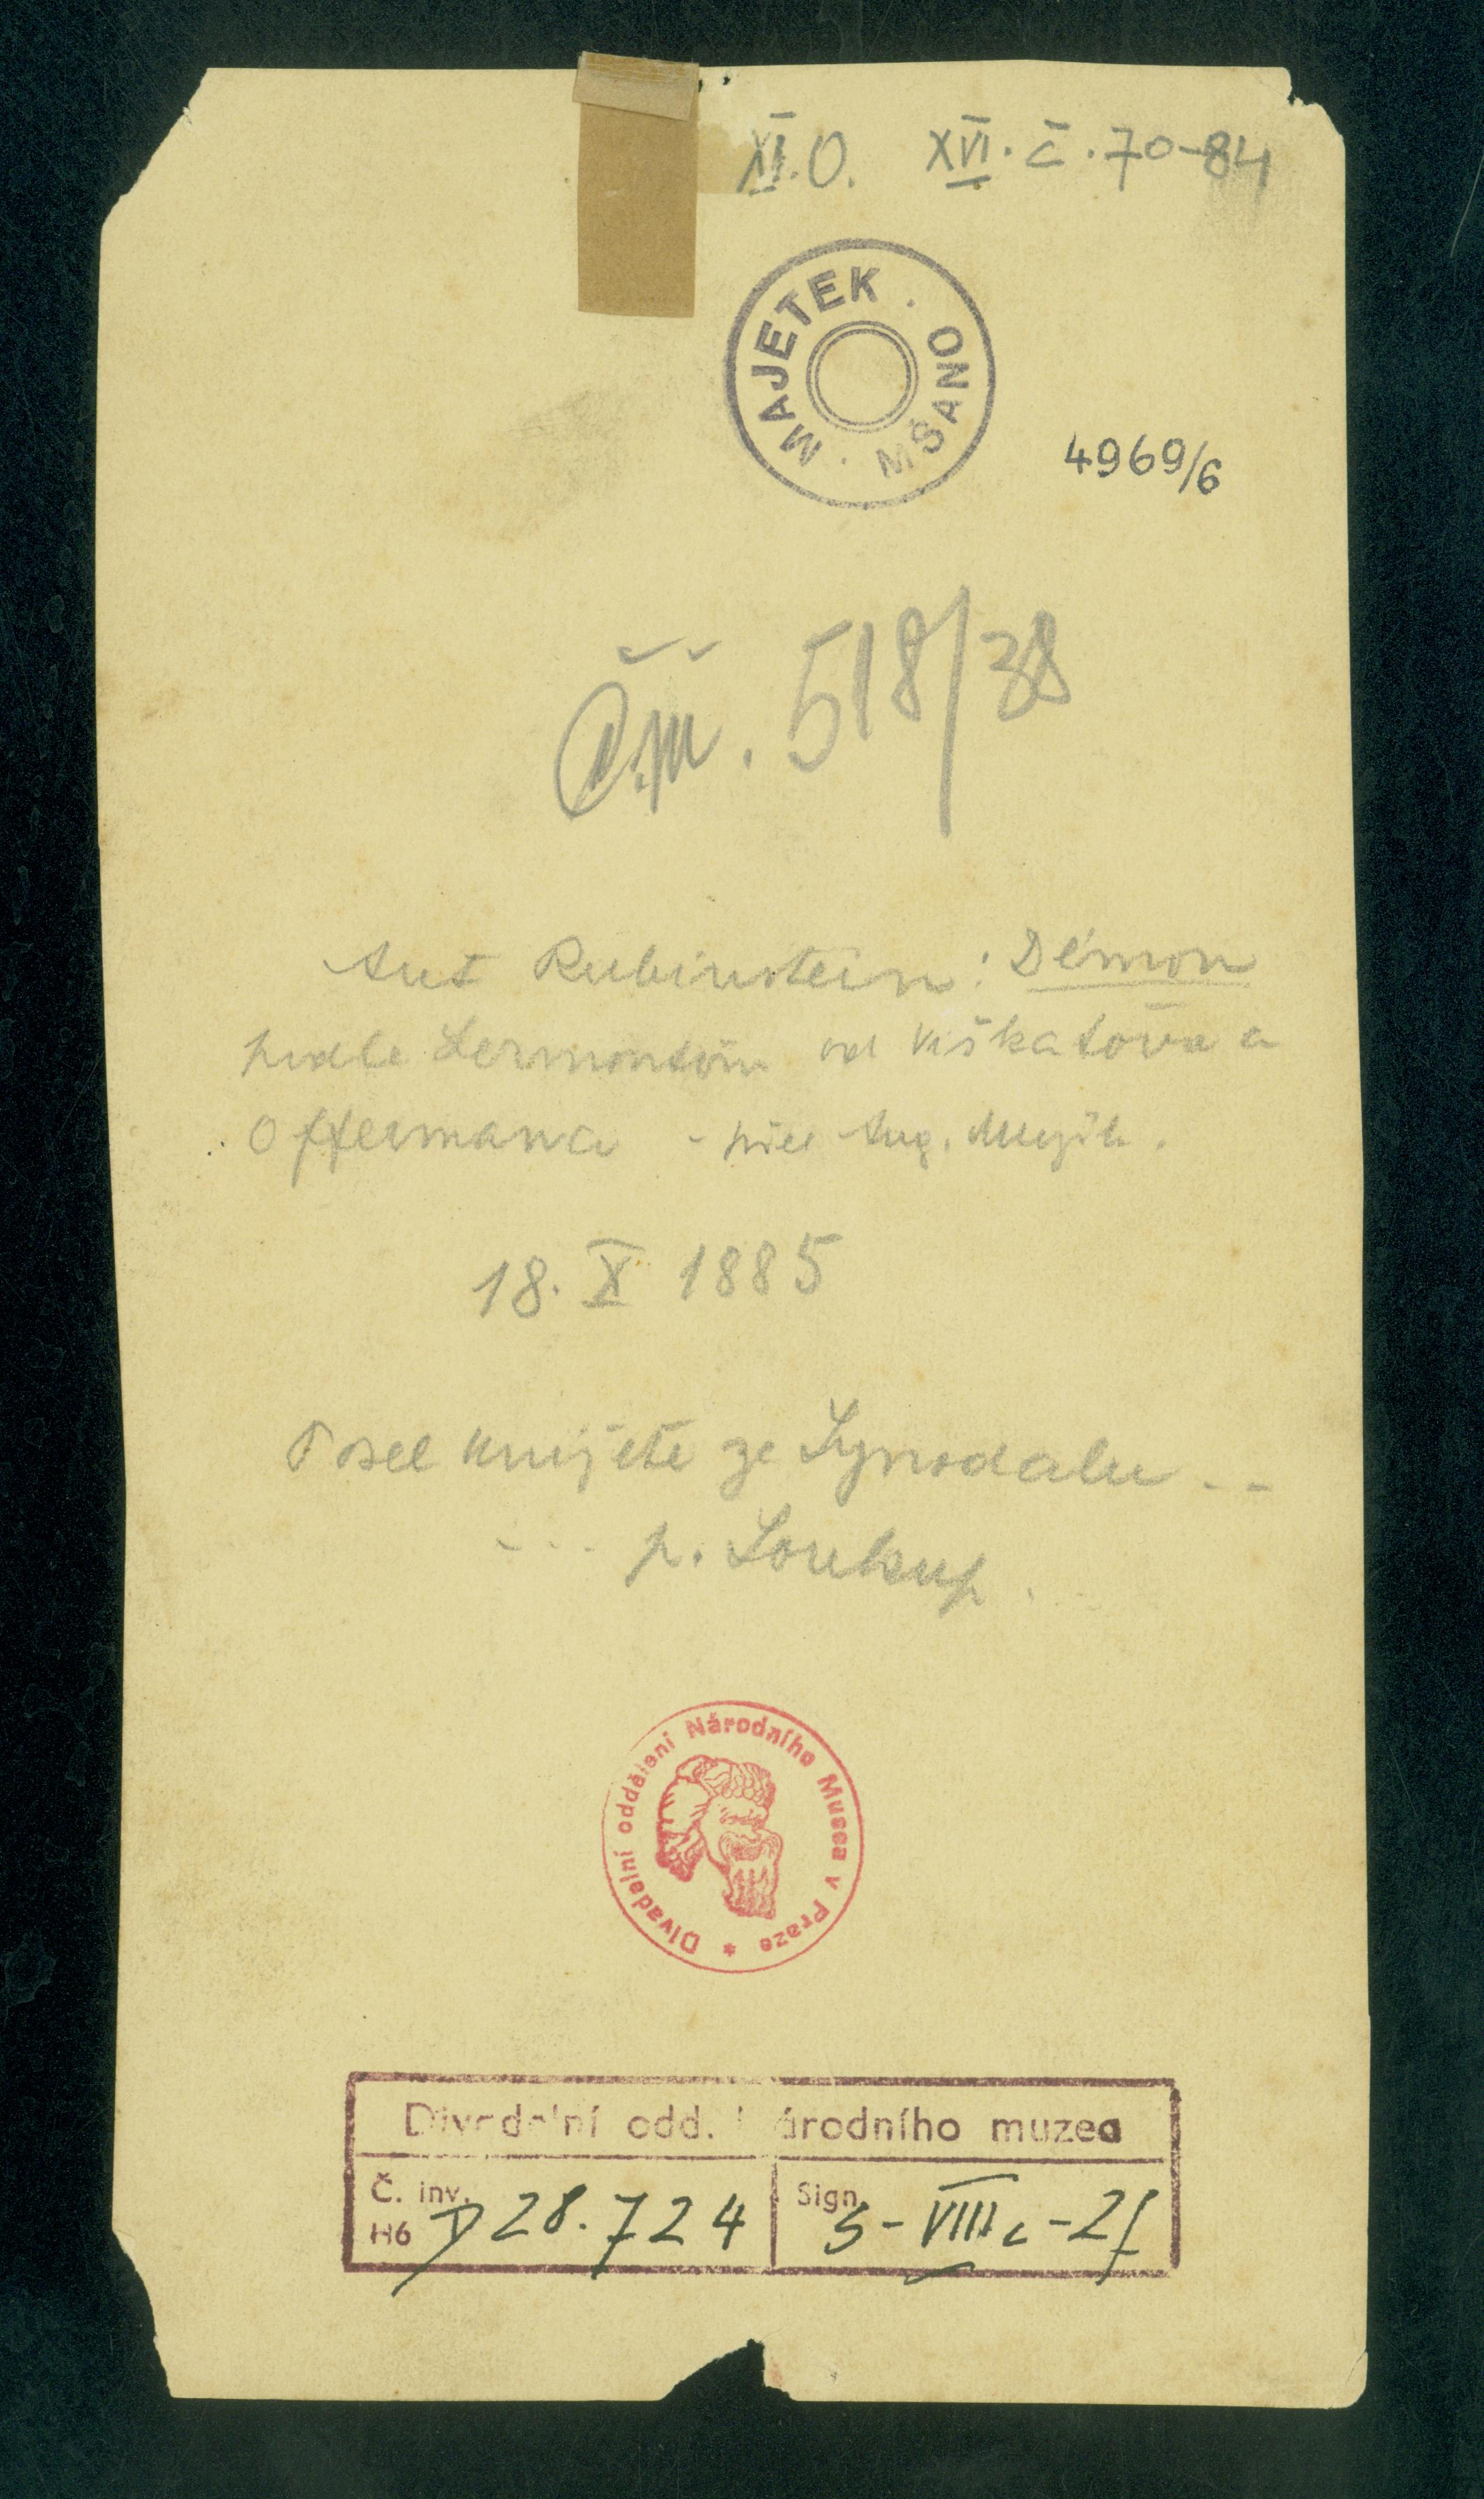 XI.O. XVI.č.70-84
MAJETEK · MŠANO ·
4969/6
518/38
Ant Rubinstein: Démon
podle Lermontova od Viškatova a
Offermana - přel Aug. Mužík.
18. X 1885
Posel knížete ze Synodalu --
--- p. Soukup
Divadelní oddělení Národního Musea v Praze *
Divadelní odd. Národního muzea
Č. inv. Sign.
H6 D 28.724 S-VIIIc-2f